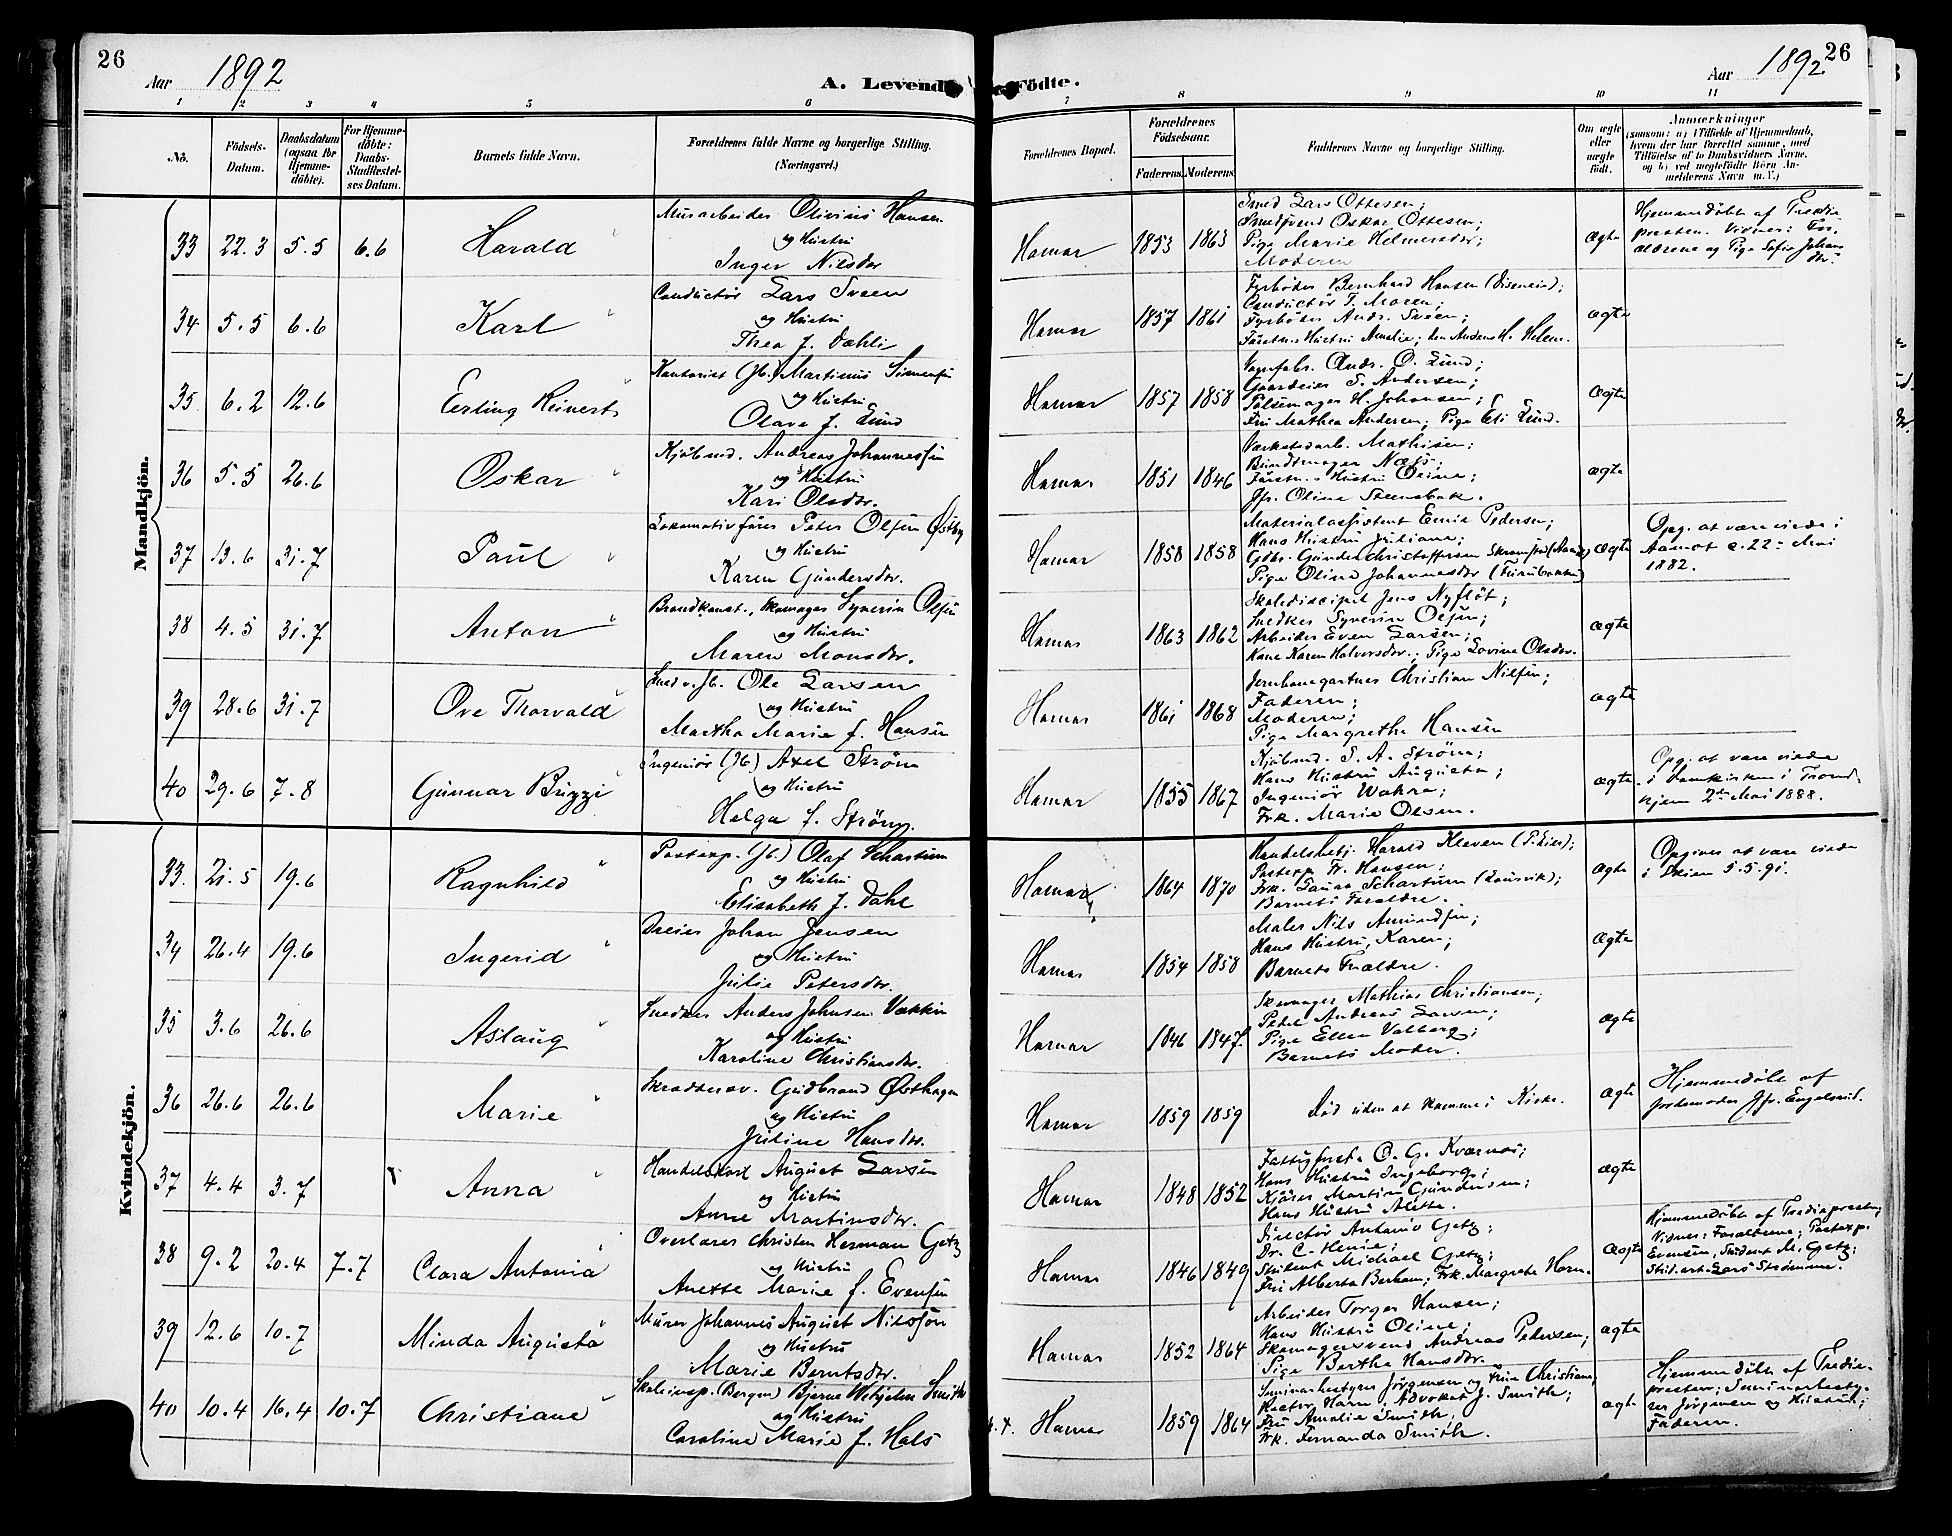 26
Aar 1892
A. Levende Födte.
Aar 1892
26
1 2 3 4 5 6 7 8 9 10 11
No.
Födsels-Datum.
Daabsdatum (ogsaa for Hjemme-döbte).
For Hjemme-döbte: Daabs-Stadfæstel-ses Datum.
Barnets fulde Navn.
Forældrenes fulde Navne og borgerlige Stilling. (Næringsvei.)
Forældrenes Bopæl.
Forældrenes Födselsaar.
Faderens. Moderens.
Faddernes Navne og borgerlige Stilling.
Om ægte eller uægte födt.
Anmærkninger
(saasom: a) i Tilfælde af Hjemmedaab, hvem der har forrettet samme, med Tilföielse af to Daabsvidners Navne, og b) ved uegtefödte Börn Anmelderens Navn m. V.)
Mandkjön.
33 22.3 5.5 6.6 Harald
Murarbeider Olivius Hansen
og Hustru
Inger Nilsdtr
Hamar 1853 1863
Smed Lars Ottesen;
Smedsvend Oskar Ottesen;
Pige Marie Helmersdtr;
Moderen
ægte
Hjemmedöbt af Tredie
presten. Vidner: For-
ældrene og Pige Sofie Johans
dtr.
34 5.5 6.6 Karl
Conductör Lars Sveen
og Hustru
Thea f. Dahli
Hamar 1857 1861
Fyrböder Bernhard Hansen (Diseneid);
Conductör T. Moren;
Fyrböter Ands. Sveen;
Förstns Hustru Amalie; den Andens H. Helene.
ægte
35 6.2 12.6 Erling Reinert
Kontorist (Jb.) Martinus Simensen
og Hustru
Olava f. Lund
Hamar 1857 1858
Vognfabr. Ands. O. Lund;
Gaardeier S. Andersen;
Pölsemager H. Johansen;
Fru Mathea Andersen; Pige Eli Lund.
ægte
36 5.5 26.6 Oskar
Kjöbmd. Andreas Johannessen
og Hustru
Kari Olsdtr.
Hamar 1851 1846
Værkstedarb. Mathisen;
Bundtmager Næss;
Förstn.s Hustru Oline;
Jfr. Oline Steensbak.
ægte
37 13.6 31.7 Paul
Lokomotivförer Peter Olsen Östby
og Hustru
Karen Gundersdtr.
Hamar 1858 1858
Materialassistent Emil Pedersen;
Hans Hustru Juliane;
Gdbr. Gunder Christoffersen
Pige Oline Johannesdtr (Furubakken)
ægte
Opg. at være viede i
Aamot c. 22de Mai
1882.
38 4.5 31.7 Anton
Brandkonst., Skomager Syverin Olsen
og Hustru
Maren Monsdtr.
Hamar 1863 1862
Skolediscipel Jens Nyflöt;
Snedker Syverin Olsen;
Arbeider Even Larsen;
Kone Karen Halvorsdtr.; Pige Lovine Olsdtr.
ægte
39 28.6 31.7 Ove Thorvald
Smed v. Jb. Ole Larsen
og Hustru
Martha Marie f. Hansen
Hamar 1861 1868
Jernbanegartner Christian Nilsen;
Faderen;
Moderen;
Pige Margrethe Hansen
ægte
40 29.6 7.8 Gunnar Brizzi
Ingeniör (Jb.) Axel Ström
og Hustru
Helga f. Ström.
Hamar 1855 1867
Kjöbmd. S. A. Ström;
Hans Hustru Augusta;
Ingeniör Wahre;
Frk. Marie Olsen.
ægte
Opg. at være viede
i Domkirken i Trond-
hjem 2den Mai 1888.
Kvindekjön.
33. 21.5 19.6 Ragnhild
Postexp. (Jb.) Olaf Schartum
og Hustru
Elisabeth f. Dahl
Hamar 1864 1870
Handelsbetj. Harald Kleven (P. Lier);
Postexp. Fr. Hansen;
Frk. Laura Schartum (Laurvik);
Barnets Forældre.
ægte
Opgives at være viede
i Skien 5.5.91.
34 26.4 19.6 Ingerid
Dreier Johan Jensen
og Hustru
Julie Petersdtr.
Hamar 1854 1858
Maler Nils Amundsen;
Hans Hustru, Karen;
Barnets Forældre.
ægte
35 3.6 26.6 Aslaug
Snedker Anders Johnsen Vakkin
og Hustru
Karoline Christiansdtr.
Hamar 1846 1847
Skomager Mathias Christiansen;
Pedel Andreas Larsen;
Pige Ellen Valberg;
Barnets Moder.
ægte
36 26.6 26.6 Marie
Skræddersv. Gudbrand Östhagen
og Hustru
Juline Hansdtr.
Hamar 1859 1859
Död uden at komme i Kirke.
ægte
Hjemmedöbt af
Jordemoder Jfr. Engelsrud.
37 4.4 3.7 Anna
Handelskarl August Larsen
og Hustru
Anne Martinsdtr.
Hamar 1848 1852
Fattigforst. O. G. Kværnæs;
Hans Hustru Ingeborg;
Kjörer Martin Gundersen;
Hans Hustru Alette.
ægte
38 9.2 20.4 7.7 Clara Antonia
Overlærer Christen Herman Getz
og Hustru
Anette Marie f. Evensen
Hamar 1846 1849
Director Antonio Getz;
Dr. C. Henie;
Student Michael Getz;
Fru Alberta Barham; Frk. Margrete Horn.
ægte
Hjemmedöbt af Tredie presten;
Vidner: Forældrene; Postexp.
Evensen, Student M. Getz;
Stud. art. Lars Strömme.
39 12.6 10.7 Minda Augusta
Murer Johannes August Nilssön
og Hustru
Marie Berntsdtr.
Hamar 1852 1864
Arbeider Torger Hansen;
Hans Hustru Oline;
Skomagersvend Andreas Pedersen;
Pige Bertha Hansdtr.
ægte
40 10.4 16.4 10.7 Christiane
Skoleinsp. (Bergen) Bjerne Vilhjelm Smith
og Hustru
Caroline Marie f. Hals
Hamar 1859 1864
Seminarbestyrer Jörgensen og Frue Christiane;
Rector Horn, Advokat J. Smith;
Fru Amalie Smith;
Frk. Fernanda Smith.
ægte
Hjemmedöbt af Tredie-
presten; Seminarbesty-
rer Jörgensen og Hustru;
Faderen.